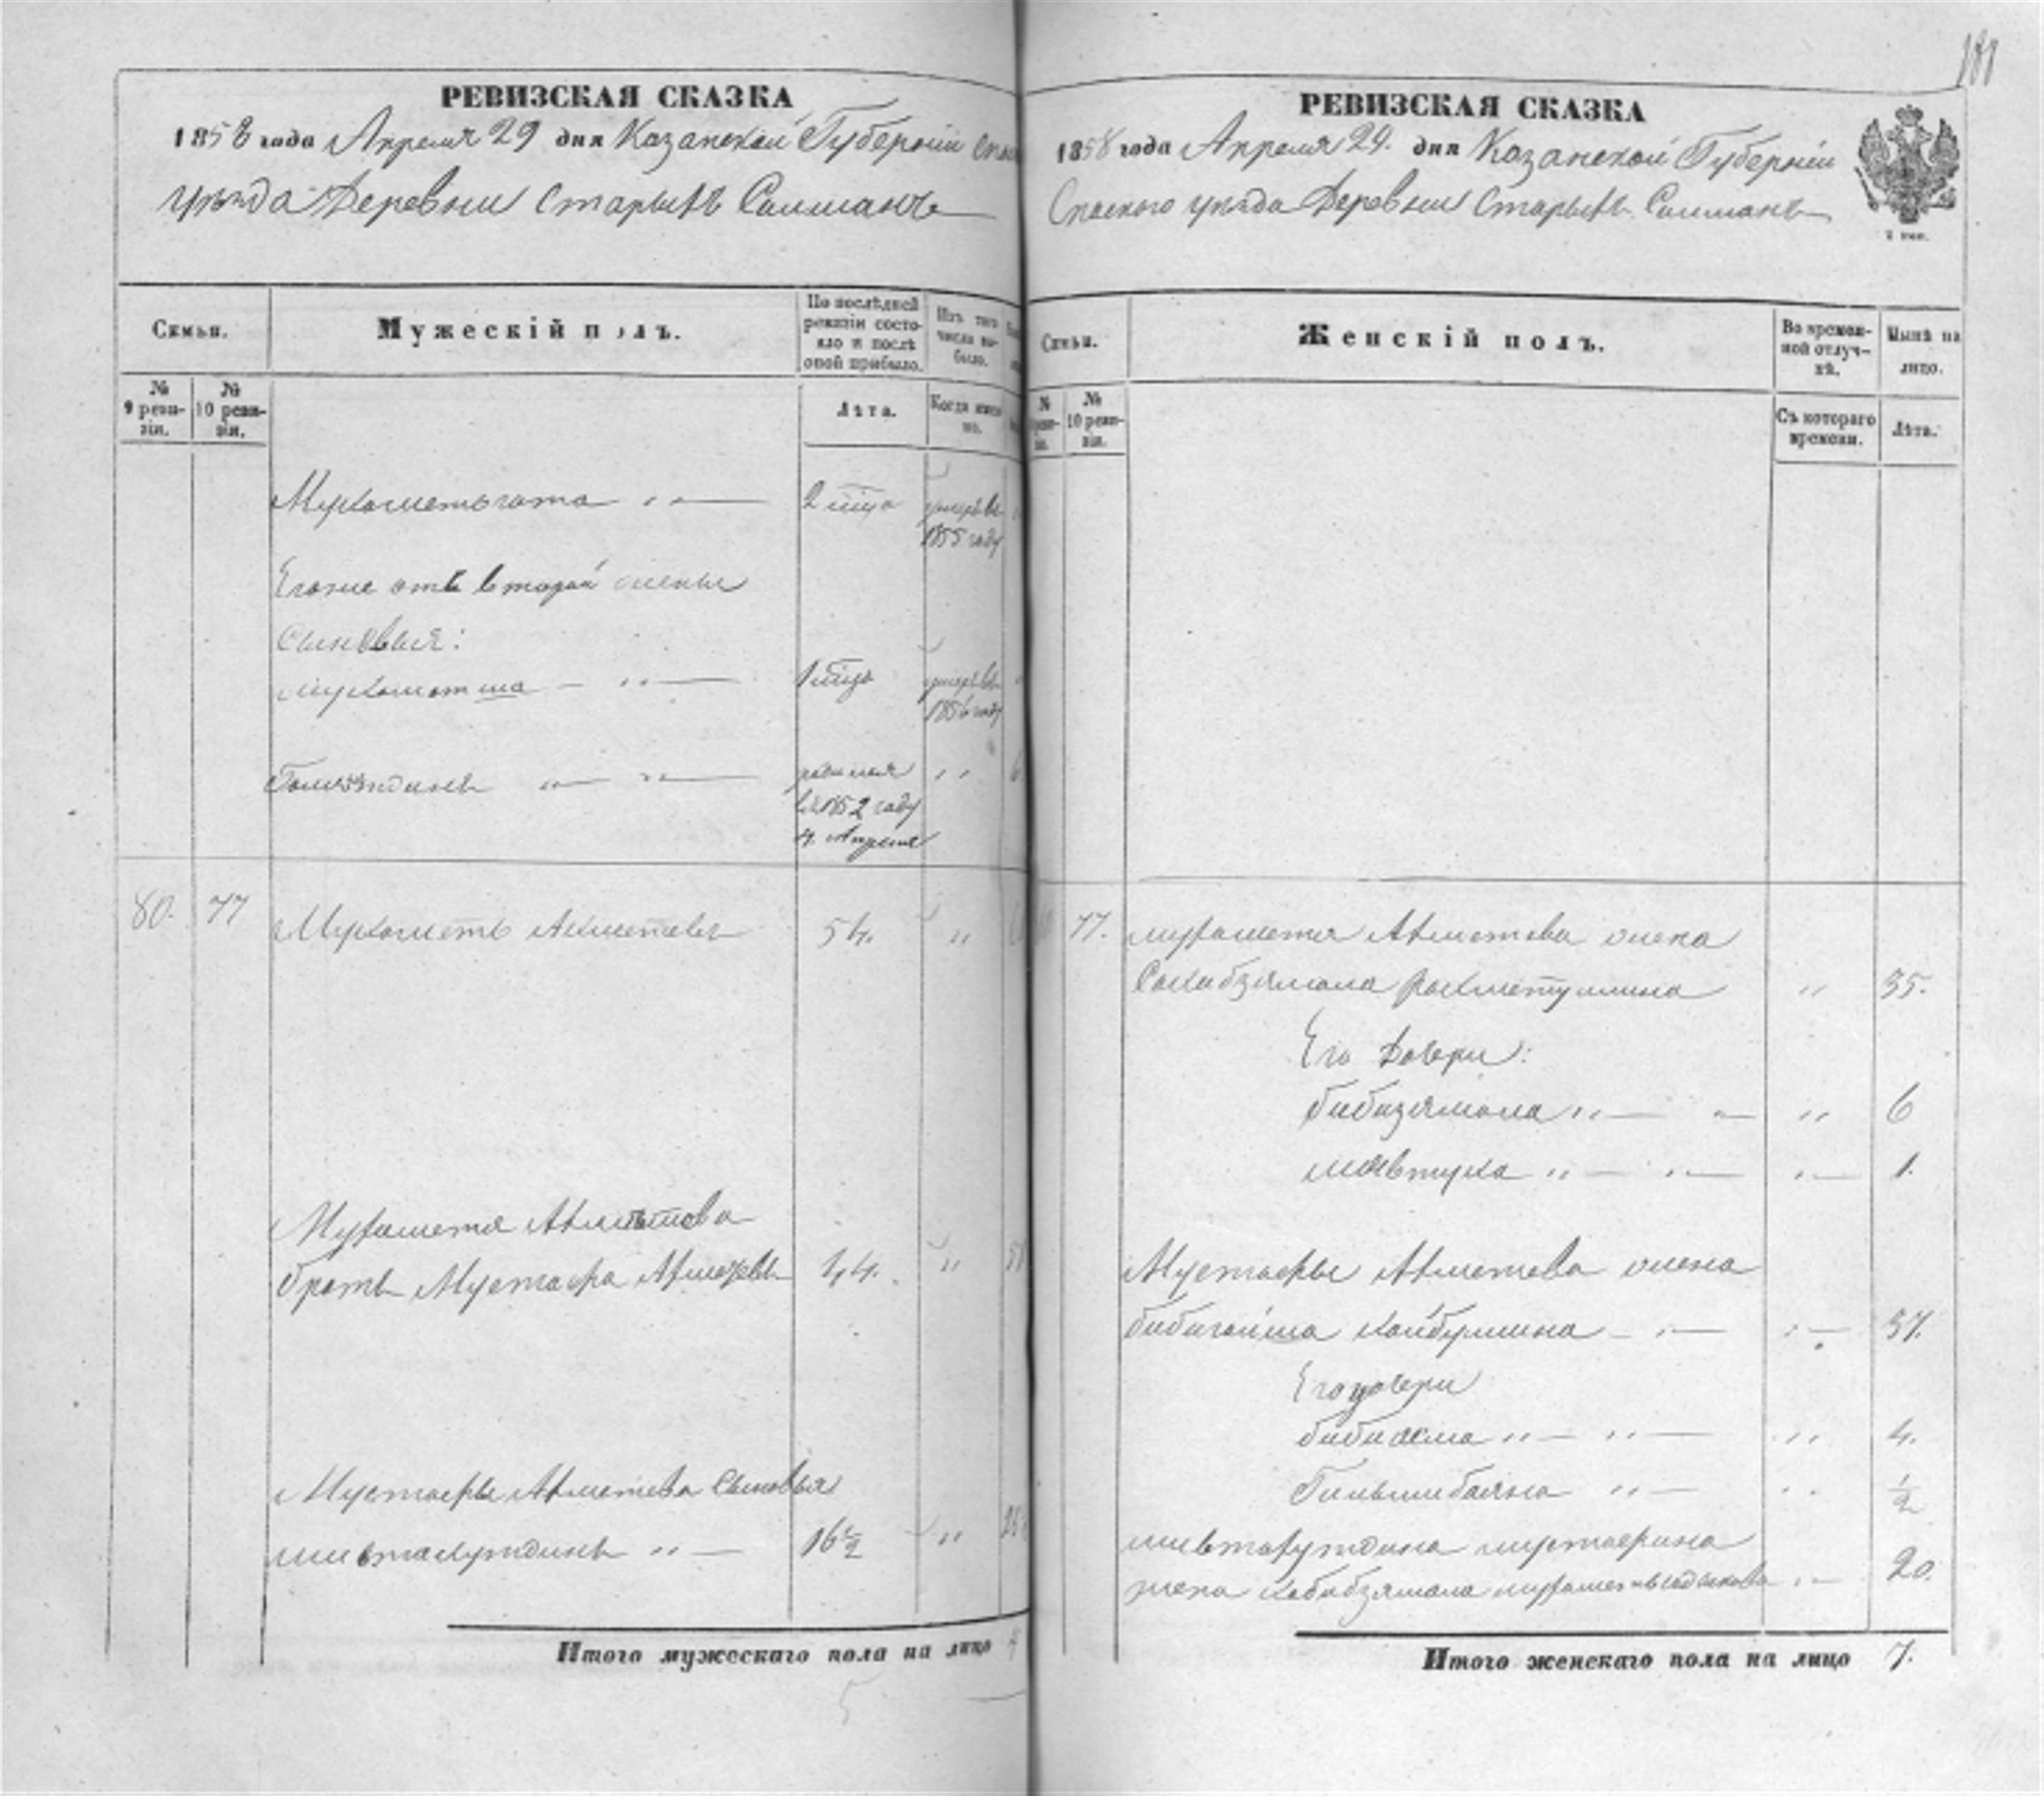 181
РЕВИЗСКАЯ СКАЗКА
1858 года Апреля 29 дня Казанской Губернии
уѣзда Деревни Старыхъ Салманъ
Семьи.
Мужескій полъ.
По послѣдней ревизіи состояло и послѣ оной прибыло.
Изъ того числа выбыло.
№ 9 ревизіи.
№ 10 ревизіи.
Лѣта.
Когда имено.
Мухаметьгата
2 мцо
умеръ въ 1855 году
Егоже отъ второй жены
Сыновья:
мухаметша
умеръ въ 1856 году
родился
въ 1852 году
4. Апреля
80. 77 Мухаметь Ахметевъ 54. "
Мухаметя Ахметева
братъ Мустафа Ахметевъ 44. "
Мустафы Ахметева Сыновья
мивтахутдинъ " 16 ½ "
Итого мужескаго пола на лицо
5
РЕВИЗСКАЯ СКАЗКА
1858 года Апреля 29. дня Казанской Губерніи
Спаскаго уѣзда Деревни Старыхъ Салманъ
Семьи.
Женскій полъ.
Во временной отлучкѣ.
Нынѣ на лицо.
№ 10 ревизіи.
Съ котораго времени.
Лѣта.
77. мухаметя Ахметева жена
Сахибзямала Рахметуллина " 35.
Его Дочери:
бибизямала " " 6
мявтуха " " 1.
Мустафы Ахметева жена
бибигайша 37.
Его дочери
биби " " 4.
Гильмибаяна " ½
мивтахутдина мустафина
жена хабибзямала 20.
Итого женскаго пола на лицо 7.